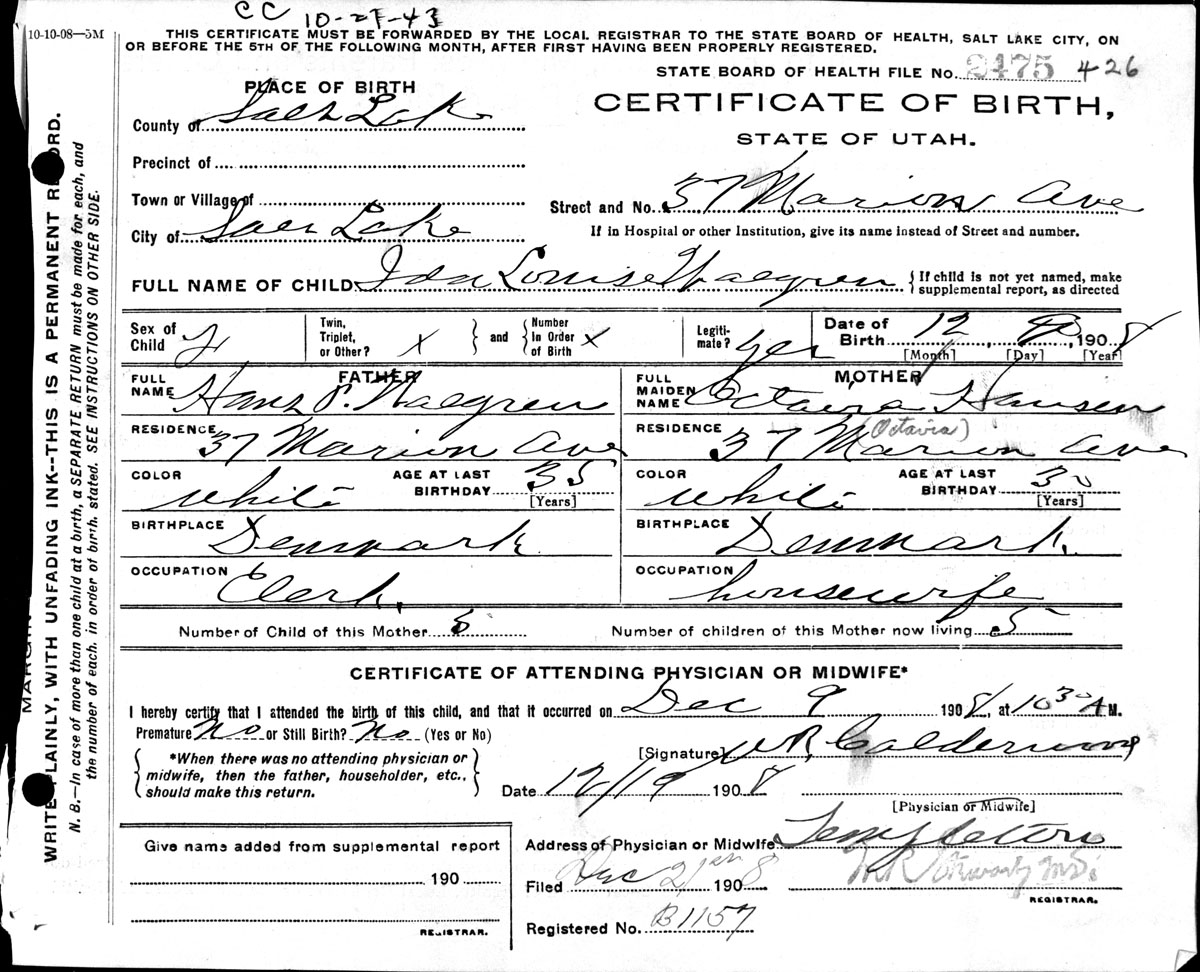 CC 10-27-43
10-10-08—5M
THIS CERTIFICATE MUST BE FORWARDED BY THE LOCAL REGISTRAR TO THE STATE BOARD OF HEALTH, SALT LAKE CITY, ON
OR BEFORE THE 5TH OF THE FOLLOWING MONTH, AFTER FIRST HAVING BEEN PROPERLY REGISTERED.
STATE BOARD OF HEALTH FILE No. 2475 426
PLACE OF BIRTH
CERTIFICATE OF BIRTH,
STATE OF UTAH.
County of Salt Lake
Precinct of
Town or Village of
City of Salt Lake
Street and No. 37 Marion Ave
If in Hospital or other Institution, give its name instead of Street and number.
FULL NAME OF CHILD Ida Louise Walgren {If child is not yet named, make supplemental report, as directed
Sex of Child F Twin, Triplet, or Other? X } and { Number In Order of Birth X Legitimate? yes Date of Birth 12, 9, 1908
[Month] [Day] [Year]
FATHER
FULL NAME Hans P. Walgren
RESIDENCE 37 Marion Ave
COLOR White AGE AT LAST BIRTHDAY 35 [Years]
BIRTHPLACE Denmark
OCCUPATION Clerk.
MOTHER
FULL MAIDEN NAME Octavia Hansen
(Octavia)
RESIDENCE 37 Marion Ave
COLOR White AGE AT LAST BIRTHDAY 30 [Years]
BIRTHPLACE Denmark.
OCCUPATION housewife
Number of Child of this Mother Number of children of this Mother now living 5
CERTIFICATE OF ATTENDING PHYSICIAN OR MIDWIFE*
I hereby certify that I attended the birth of this child, and that it occurred on Dec 9 1908, at 10 30 A M.
Premature No or Still Birth? No (Yes or No)
{ *When there was no attending physician or midwife, then the father, householder, etc., should make this return. }
[Signature] Calderwood
Date 12/19 1908
[Physician or Midwife]
Address of Physician or Midwife Templeton
Filed Dec 21 1908
REGISTRAR.
Registered No. B1157
Give name added from supplemental report
190
REGISTRAR.
MARGIN
WRITE PLAINLY, WITH UNFADING INK--THIS IS A PERMANENT RECORD.
N. B.—In case of more than one child at a birth, a SEPARATE RETURN must be made for each, and
the number of each, in order of birth, stated. SEE INSTRUCTIONS ON OTHER SIDE.